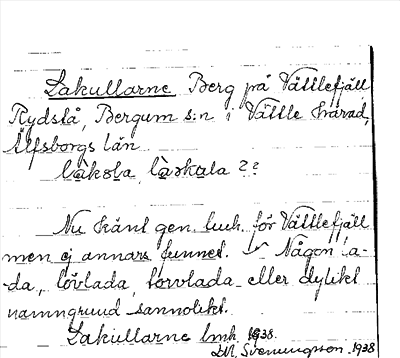 Lakullarne Berg på Vättlefjäll
Rydstå, Bergum s:n i Vättle härad,
Älfsborgs län
Nu känt gen. luk. för Vättlefjäll
men ej annars funnet. Någon la-
da, lövlada, torvlada eller dylikt
namngrund sannolikt.
Lakullarne lmk 1938.
Svenningsson 1938